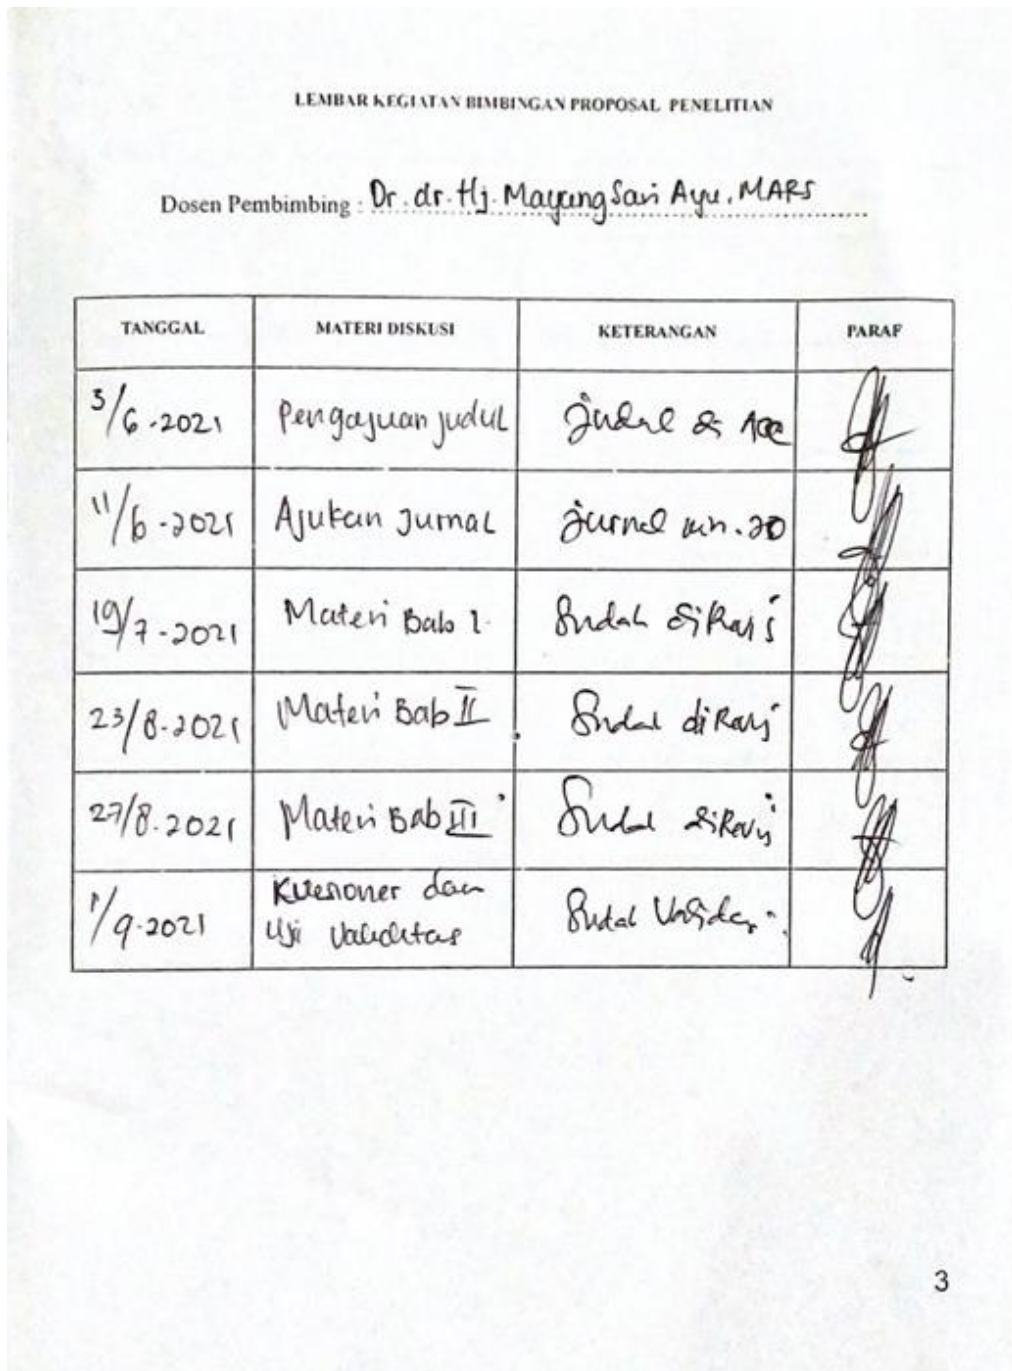 LEMBAR KEGIATAN BIMBINGAN PROPOSAL PENELITIAN
Dosen Pembimbing : Dr. dr. Hj. Mayang Sari Ayu, MARS
TANGGAL MATERI DISKUSI KETERANGAN PARAF
3/6-2021 Pengajuan judul judul di ACC
11/6-2021 Ajukan Jurnal jurnal min. 20
19/7-2021 Materi Bab I Sudah di
23/8-2021 Materi Bab II Sudah di
27/8-2021 Materi Bab III Sudah di
1/9-2021 Kuesioner dan
Uji Validitas Sudah
3